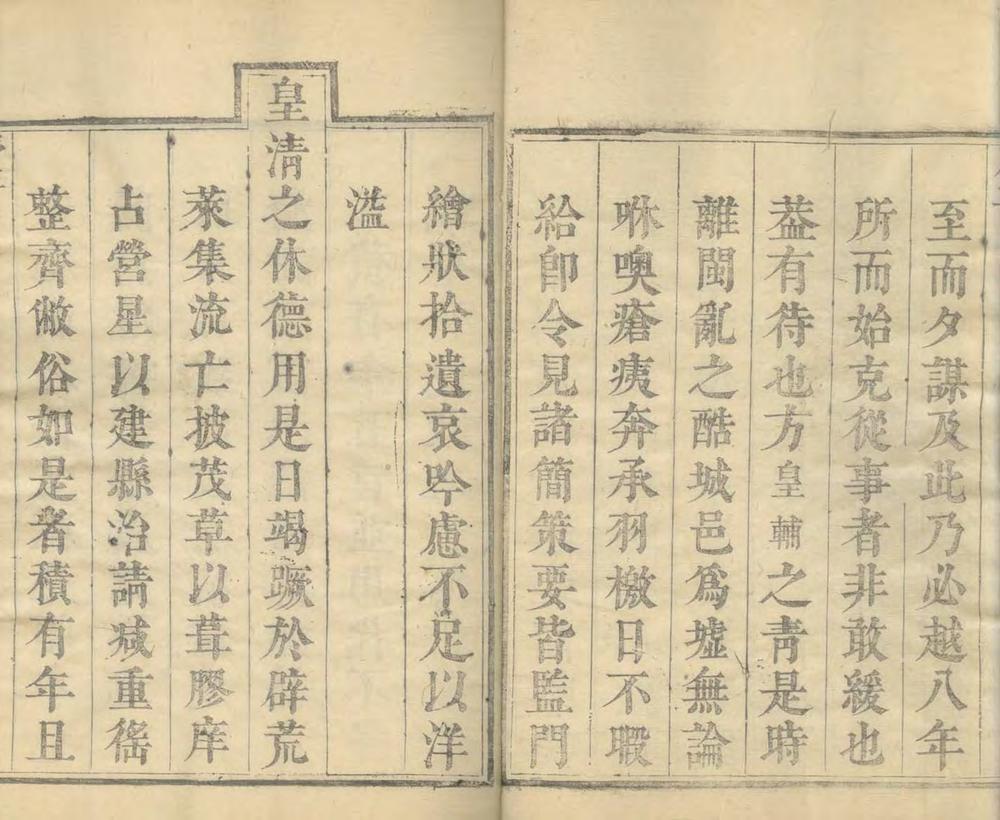 至而夕謀及此乃必越八年
所而始克從事者非敢緩也
葢有待也方皇輔之靑是時
離閩亂之酷城邑爲墟無論
咻噢瘡痍奔承羽檄日不暇
給卽令見諸簡策要皆監門
繪狀拾遺哀吟慮不足以洋
溢
皇淸之休德用是日竭蹶於辟荒
萊集流亡披茂草以葺膠庠
占營星以建縣治請减重徭
整齊敝俗如是者積有年且